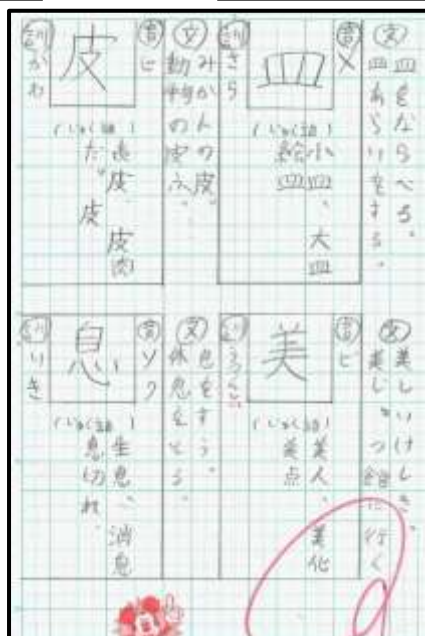 文 皿をならべる。
皿あらいをする。
音 ×
皿
訓 さら
(じゅく語)
小皿、大皿
絵皿
文 みかんの皮。
動物の皮ふ。
音 ヒ
皮
訓 かわ
(じゅく語)
表皮、皮肉
文 美しいけしき。
美じゅつ館に行く
音 ビ
美
訓 うつくしい
(じゅく語)
美人、美化
美点
文 息をすう。
休息をとる。
音 ソク
息
訓 いき
(じゅく語)
生息、消息
息切れ